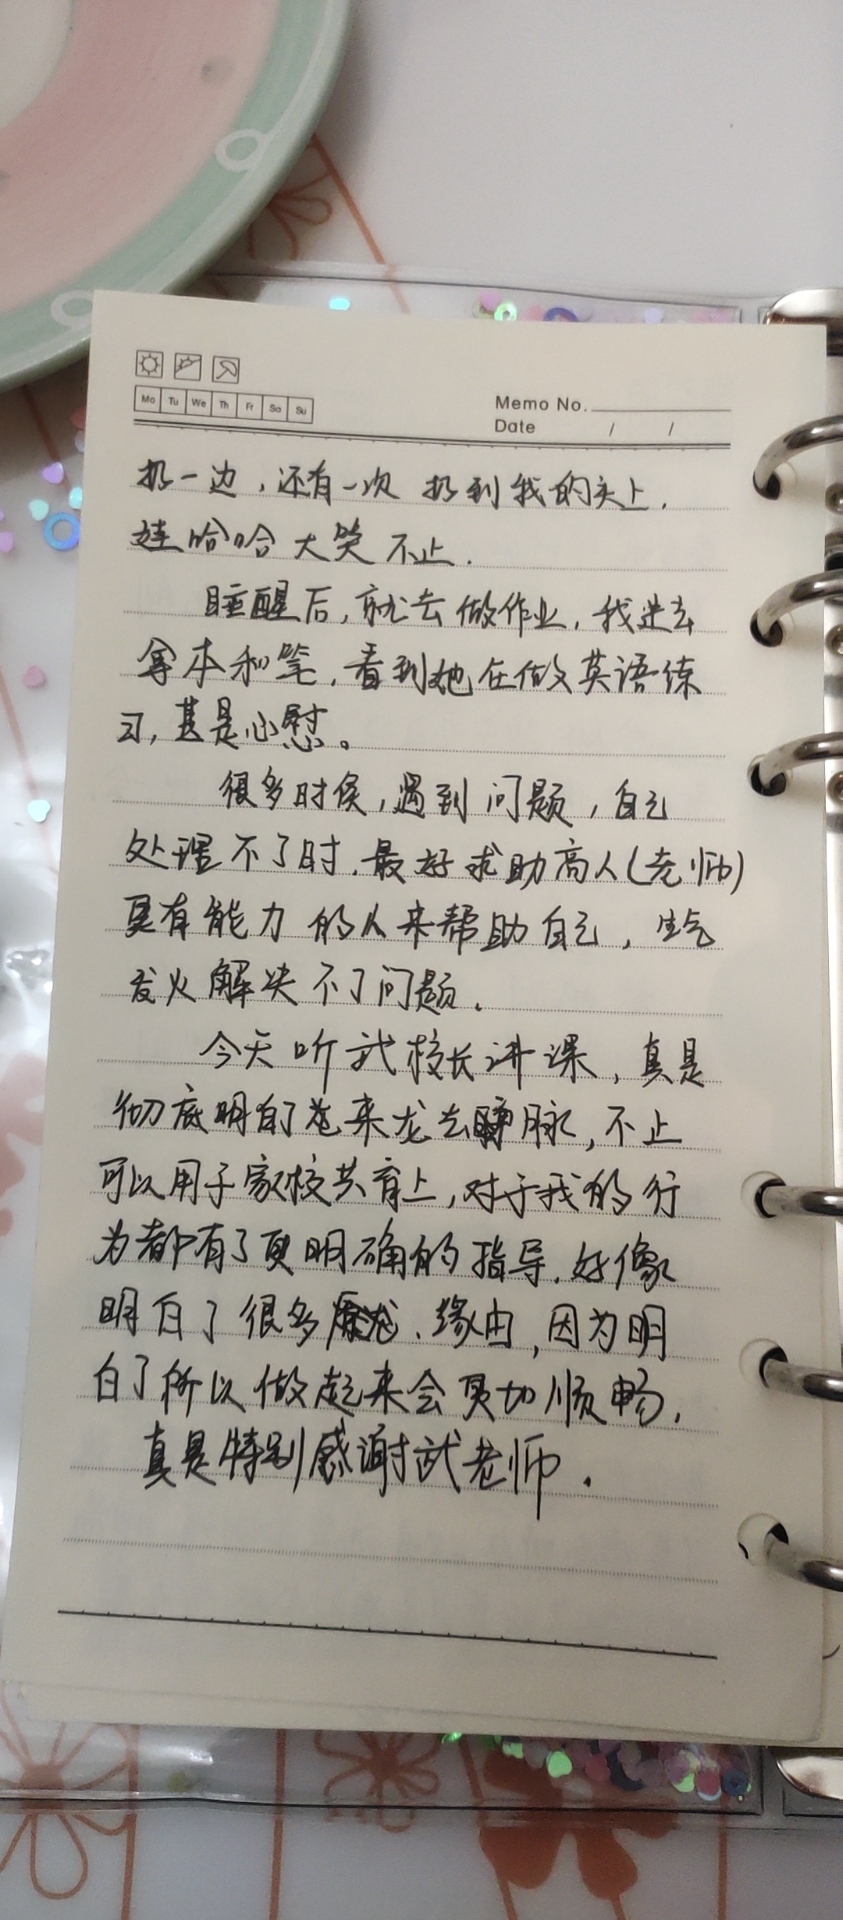 Mo Tu We Th Fr Sa Su
Memo No.
Date / /
扔一边，还有一次 扔到我的头上，
娃哈哈大笑不止．
睡醒后，就去做作业，我进去
拿本和笔，看到她在做英语练
习，甚是心慰。
很多时候，遇到问题，自己
处理不了时，最好求助高人（老师）
更有能力的人来帮助自己，生气
发火解决不了问题．
今天听武校长讲课，真是
彻底明白了 来龙去脉，不止
可以用于家校共育上，对于我的行
为都有了更明确的指导，好像
明白了很多 、缘由，因为明
白了所以做起来会更加顺畅，
真是特别感谢武老师．